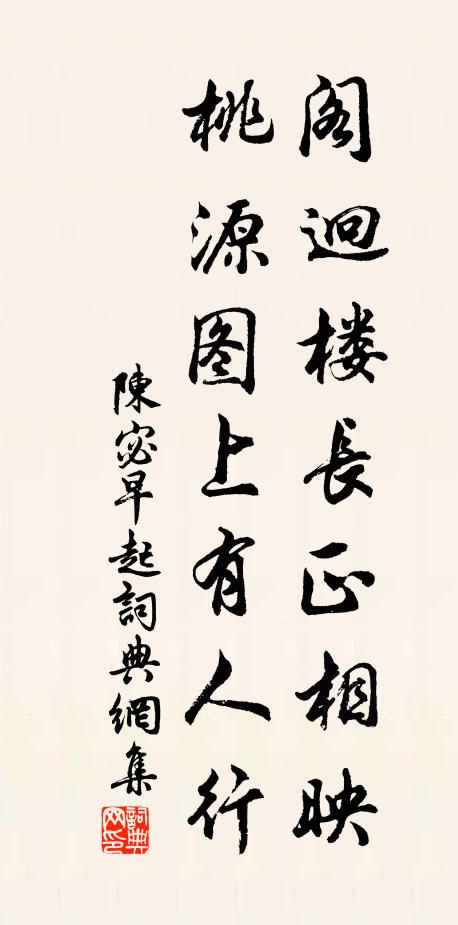 阁迥楼長正相映
桃源图上有人行
陳宓早起詞典網集
詞典网印